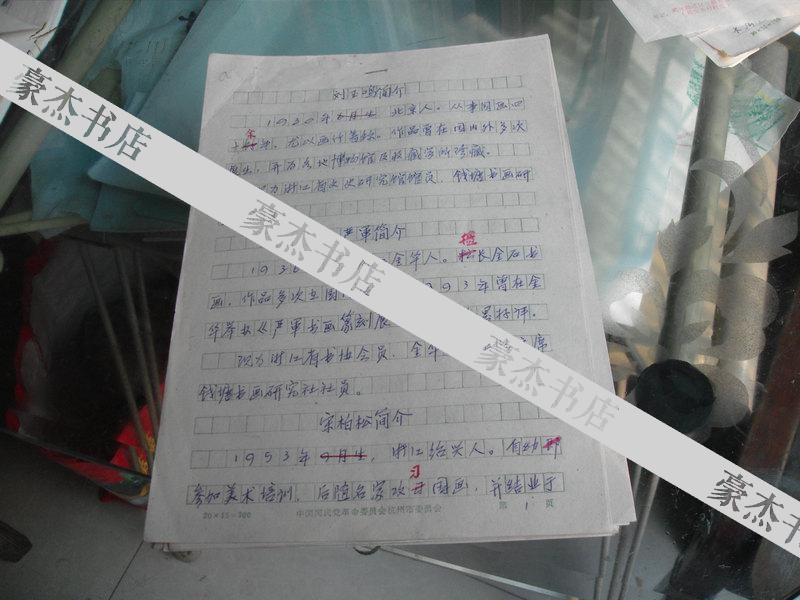 一
刘玉鸣简介
1930年8月生 北京人。从事国画四
年
十年,尤以画竹著称。作品曾在国内外多次
展出,并为各地博物馆及收藏家所珍藏。
现为浙江省文史研究馆馆员、钱塘书画研
严军简介
擅
1936 金华人。长金石书
画。作品多次在国 93年曾在金
华举办《严军书画篆刻展 好评。
现为浙江省书协会员、金华 席
钱塘书画研究社社员。
宋柏松简介
1953年9月生,浙江绍兴人。自幼
习
参加美术培训,后随名家攻国画,并结业于
20×15=300 中国国民党革命委员会杭州市委员会 第 1 页
豪杰书店
豪杰书店
豪杰书店
豪杰书店